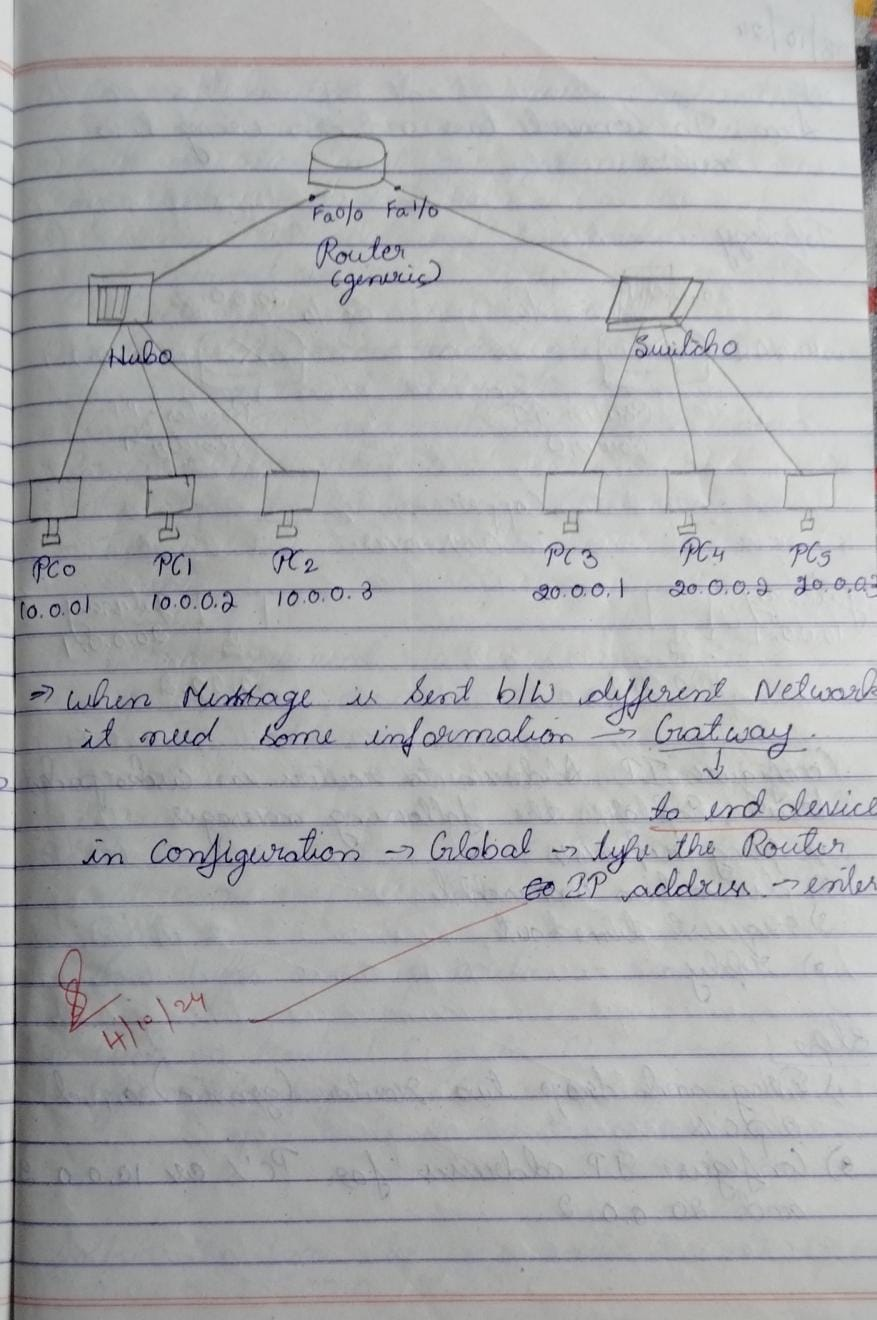 Fa0/0 Fa1/0
Router
(generic)
Hub0
Switch0
PC0 PC1 PC2 PC3 PC4 PC5
10.0.01 10.0.0.2 10.0.0.3 20.0.0.1 20.0.0.2 20.0.0.3
⇒ when Message is sent b/w different Network
it need some information → Gratway.
↓
to end device
in Configuration → Global → type the Router
IP address → enter
4/10/24